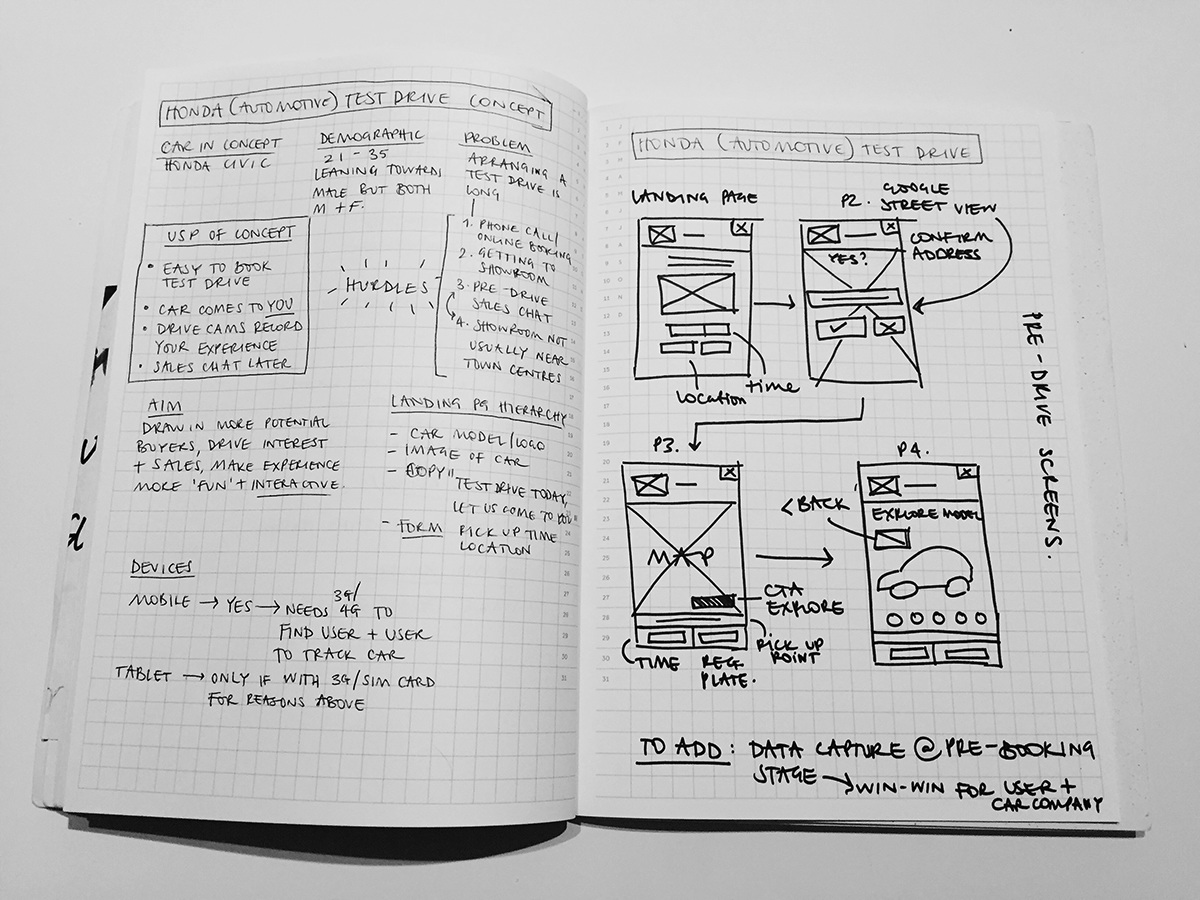 HONDA (AUTOMOTIVE) TEST DRIVE CONCEPT
CAR IN CONCEPT
HONDA CIVIC
DEMOGRAPHIC
21 - 35
LEANING TOWARDS
MALE BUT BOTH
M + F.
PROBLEM
ARRANGING A
TEST DRIVE IS
LONG
1. PHONE CALL/
ONLINE BOOKING
2. GETTING TO
SHOWROOM
3. PRE-DRIVE
SALES CHAT
4. SHOWROOM NOT
USUALLY NEAR
TOWN CENTRES
HURDLES
USP OF CONCEPT
• EASY TO BOOK
TEST DRIVE
• CAR COMES TO YOU
• DRIVE CAMS RECORD
YOUR EXPERIENCE
• SALES CHAT LATER
AIM
DRAW IN MORE POTENTIAL
BUYERS, DRIVE INTEREST
+ SALES, MAKE EXPERIENCE
MORE 'FUN' + INTERACTIVE.
LANDING PG HIERARCHY
- CAR MODEL/LOGO
- IMAGE OF CAR
- COPY " TEST DRIVE TODAY,
LET US COME TO YOU
- FORM PICK UP TIME
LOCATION
DEVICES
MOBILE → YES → NEEDS 3G/
4G TO
FIND USER + USER
TO TRACK CAR
TABLET → ONLY IF WITH 3G/SIM CARD
FOR REASONS ABOVE
HONDA (AUTOMOTIVE) TEST DRIVE
LANDING PAGE
location
time
P2. GOOGLE
STREET VIEW
CONFIRM
ADDRESS
YES?
P3.
MAP
CTA
EXPLORE
PICK UP
POINT
TIME
REG.
PLATE.
P4.
< BACK
EXPLORE MODEL
PRE-DRIVE SCREENS.
TO ADD: DATA CAPTURE @ PRE-BOOKING
STAGE → WIN-WIN FOR USER +
CAR COMPANY